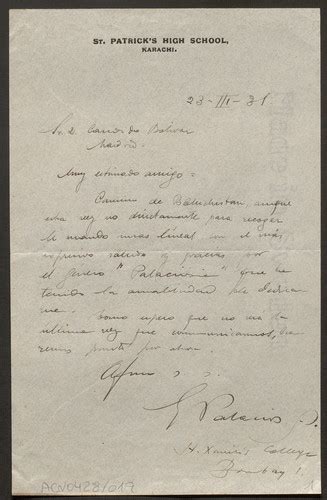 St. PATRICK'S HIGH SCHOOL,
KARACHI.
23-III-31
Sr. D. Candido Bolivar
Madrid.
Muy estimado amigo:
Camino de Baluchistan, aunque
esta vez no directamente para recoger
le mando unas lineas con el más
expresivo saludo y gracias por
el género "Palaciosia" que ha
tenido la amabilidad de dedicar
me.
Como espero que no sea la
última vez que comunicamos,
pronto por
Afmo s. s.
E Palacios
St. Xavier's College
Bombay 1.
ACN0428/019